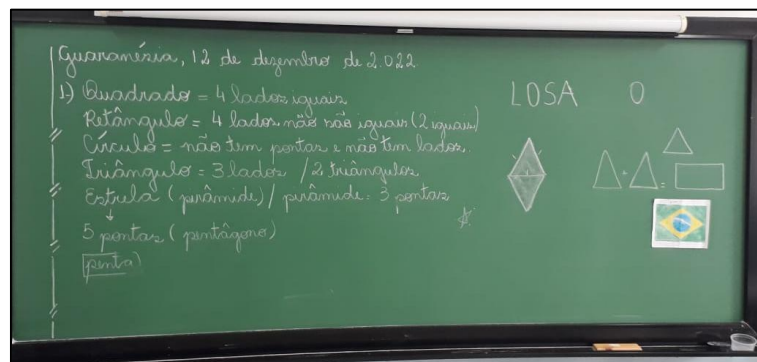 Guaranésia, 12 de dezembro de 2.022
1-) Quadrado = 4 lados iguais.
Retângulo = 4 lados não são iguais (2 iguais)
Círculo = não tem pontas e não tem lados.
Triângulo = 3 lados / 2 triângulos
Estrela (pirâmide) / pirâmide = 3 pontas
5 pontas (pentágono)
penta)
LOSA O
+ =